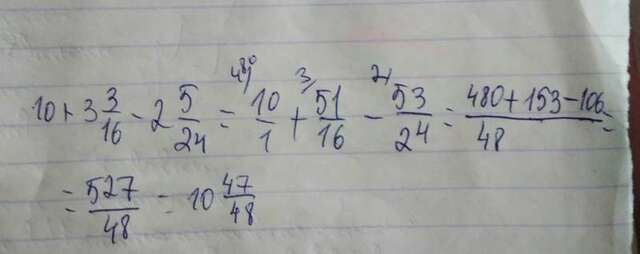 10 + 3 3/16 - 2 5/24 = 10/1 + 51/16 - 53/24 = 480+153-106/48 =
= 527/48 = 10 47/48